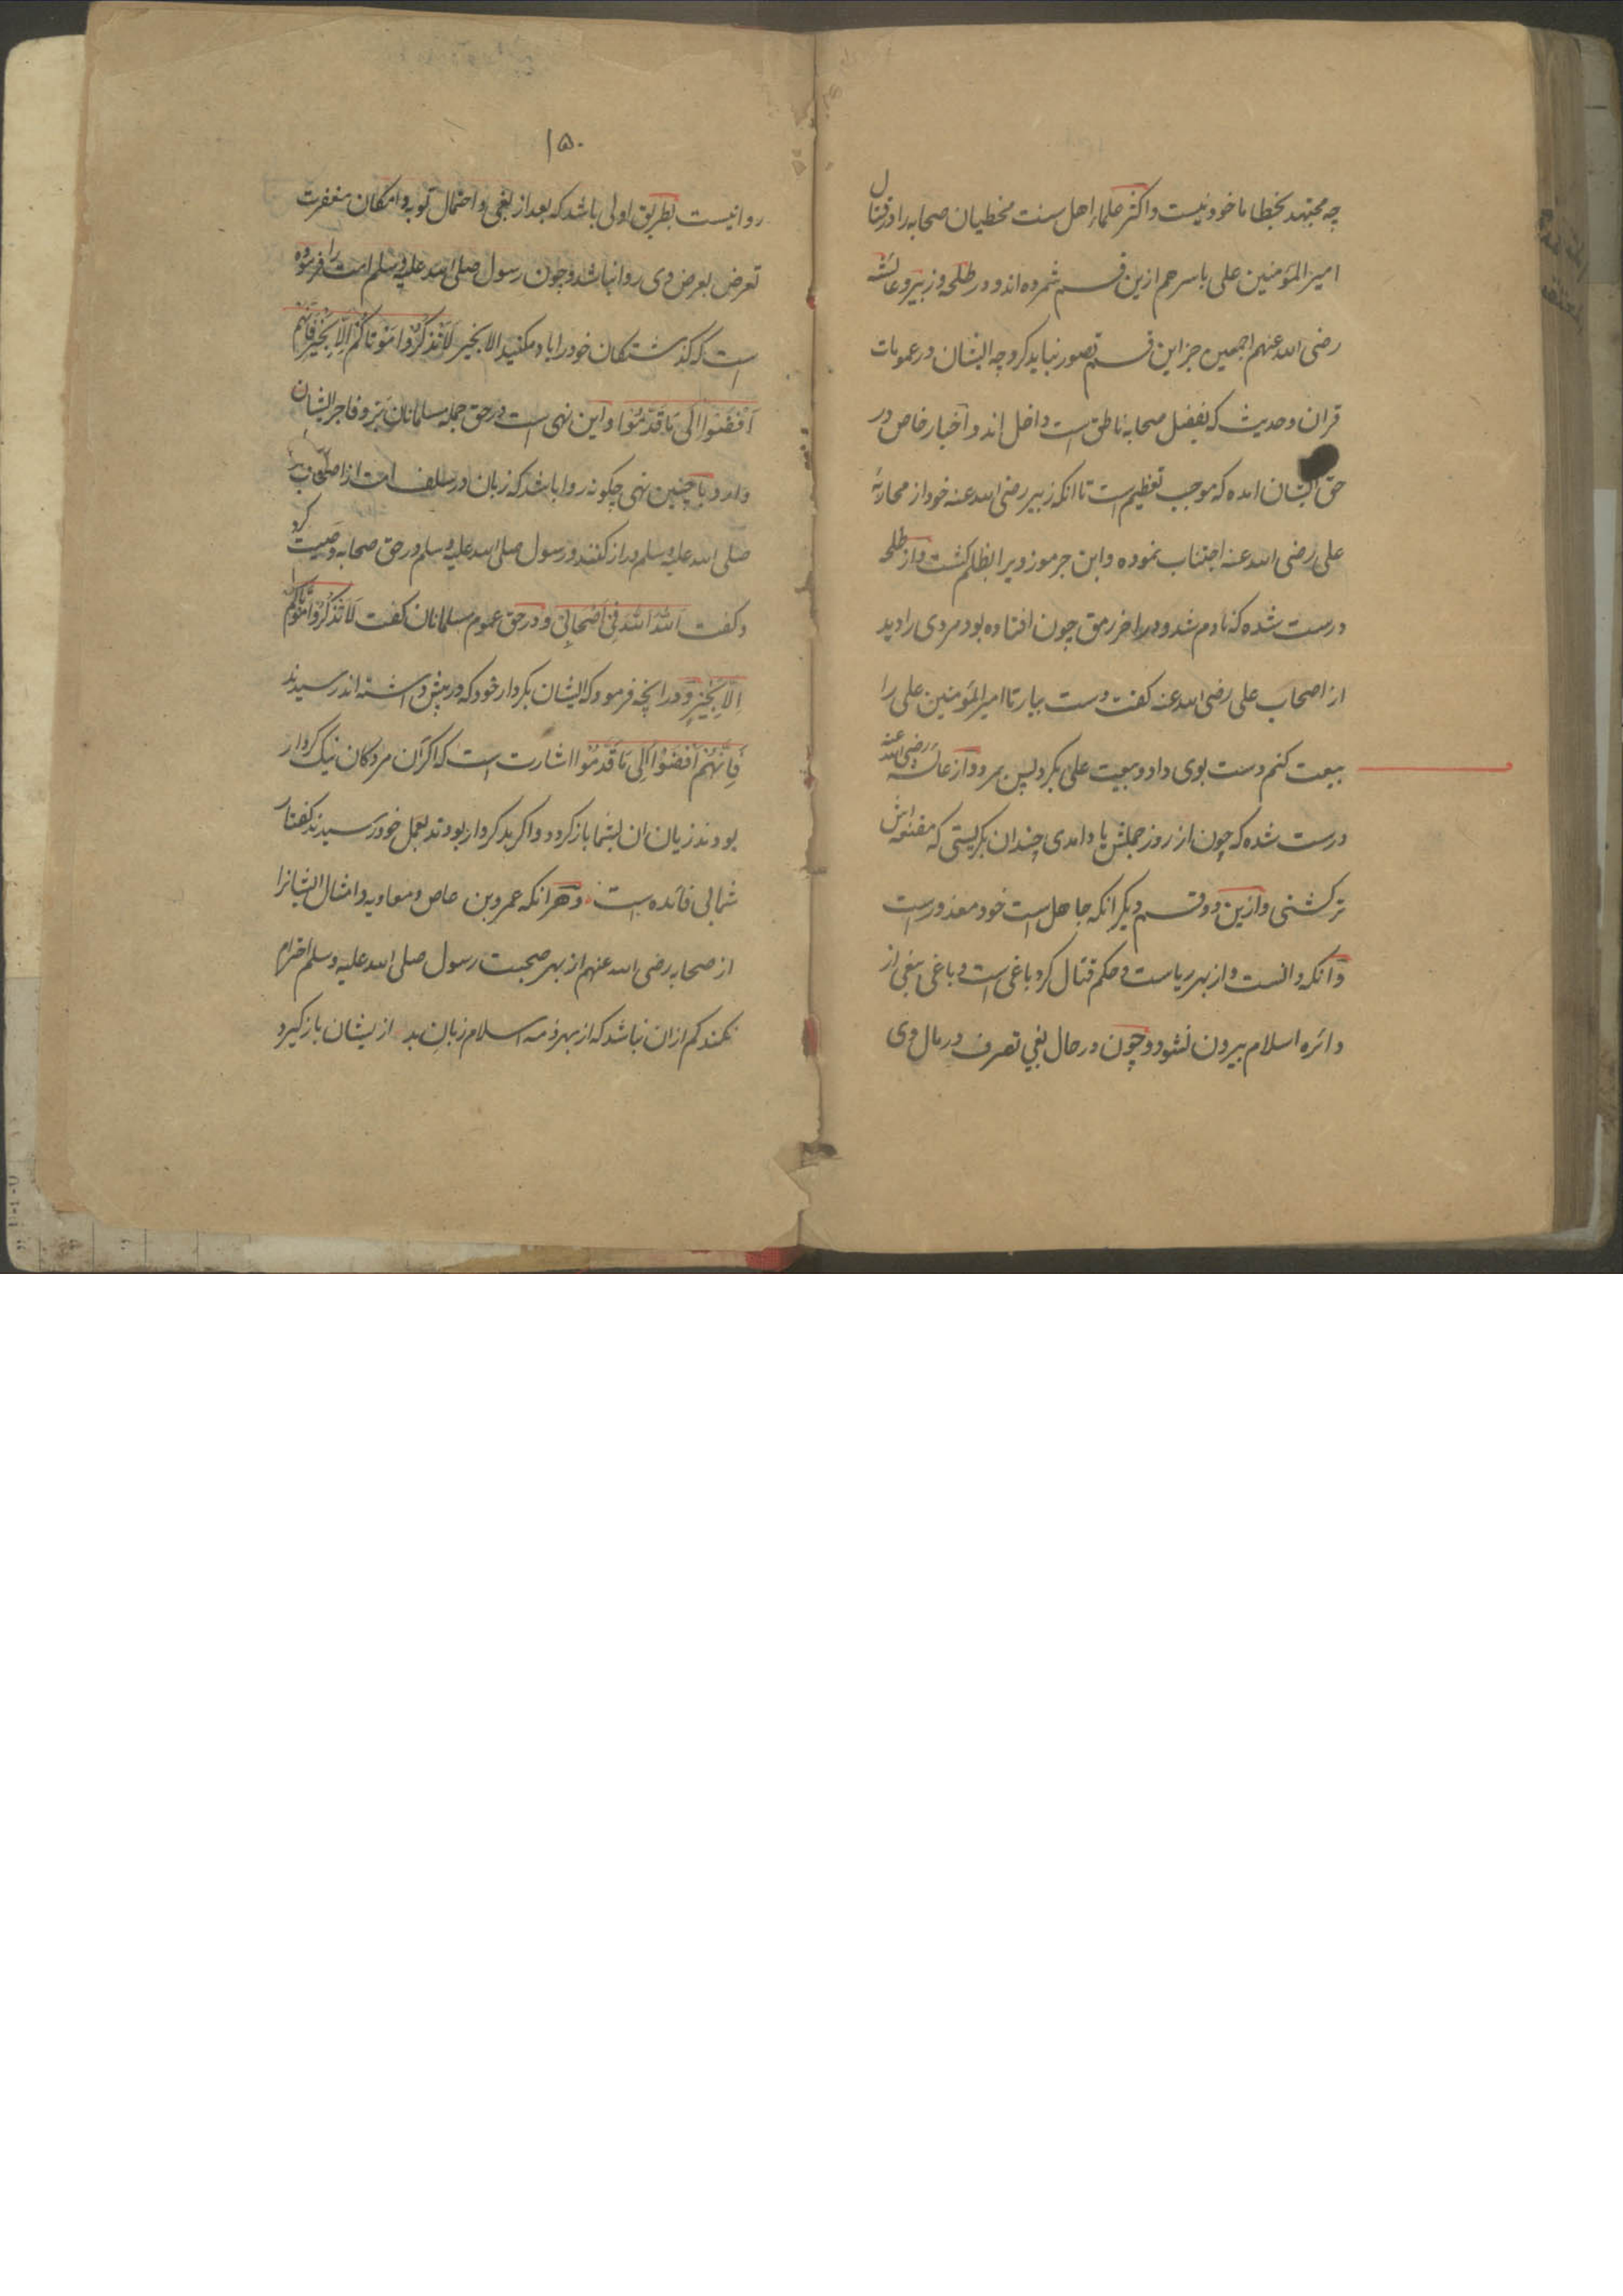 چه مجتهد بخطا ماخوذ نیست و اکثر علماء اهل سنت مخطیان صحابه را در قتال
امیر المؤمنین علی باسرهم ازین قسم شمرده اند و در طلحه و زبیر و عائشه
رضی الله عنهم اجمعین جز این قسم تصور نباید کرد چه ایشان در عمومات
قران و حدیث که بفضل صحابه ناطق است داخل اند و اخبار خاص در
حق ایشان امده که موجب تعظیم است تا انکه زبیر رضی الله عنه خود از محاربۀ
علی رضی الله عنه اجتناب نموده و ابن جرموز ویرا بظلم کشت و از طلحه
درست شده که نادم شد و در اخر رمق چون افتاده بود مردی را دید
از اصحاب علی رضی الله عنه کفت دست بیار تا امیر المؤمنین علی را
بیعت کنم دست بوی داد و بیعت علی بکرد پس بمرد و از عائشه رضی الله عنه
درست شده که چون از روز جملش یاد امدی چندان بکریستی که مقنعه اش
تر کشتی و ازین دو قسم دیکر انکه جاهل است خود معذورست
و انکه دانست و از بهر ریاست و حکم قتال کرد باغی است و باغی ببغی از
دائره اسلام بیرون نشود و چون در حال بغی تصرف در مال وی
۱۵۰
روا نیست بطریق اولی باشد که بعد از بغی و احتمال توبه و امکان مغفرت
تعرض بعرض وی روا نباشد و چون رسول صلی الله علیه وسلم امت را فرموده
است که کذشتکان خود را یاد مکنید الا بخیر لَا تَذْكُرُوا مَوْتَاكُمْ اِلَّا بِخَيْرٍ فَاِنَّهُمْ
اَفْضَوْا اِلَى مَا قَدَّمُوْا و این نهی است در حق جمله مسلمانان بَرّ و فاجر ایشان
وارد با چنین نهی چکونه روا باشد که زبان در سلف امت از اصحاب
صلی الله علیه وسلم دراز کنند و رسول صلی الله علیه وسلم در حق صحابه وصیت کرد
و کفت اَللّٰهَ اَللّٰهَ فِيْ اَصْحَابِيْ و در حق عموم مسلمانان کفت لَا تَذْكُرُوْا مَوْتَاكُمْ
اِلَّا بِخَيْرٍ و در انچه فرمود که ایشان بکردار خود که در پیش داشته اند رسیدند
فَاِنَّهُمْ اَفْضَوْا اِلَى مَا قَدَّمُوْا اشارت است که اکر آن مردکان نیک کردار
بودند زیان ان بشما باز کردد و اکر بد کردار بودند بعمل خود رسیدند کفتار
شما بی فائده است و هر انکه عمرو بن عاص و معاویه و امثال ایشانرا
از صحابه رضی الله عنهم از بهر صحبت رسول صلی الله علیه وسلم احترام
نکند کم ازان نباشد که از بهر ذمه اسلام زبانِ بد ازیشان باز کیرد